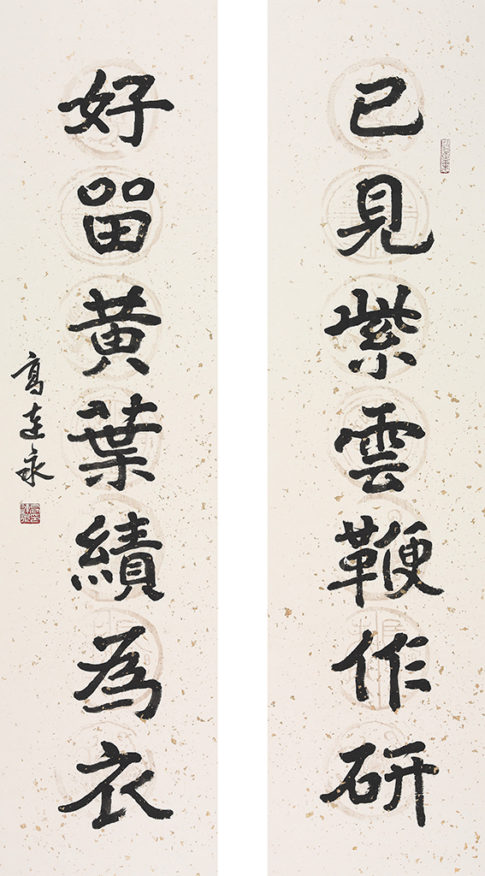 已見紫雲鞭作研
好留黄葉績為衣
高永